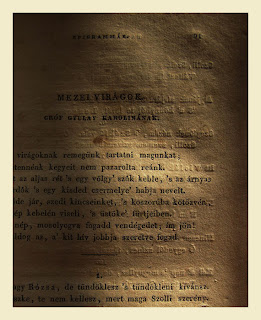 EPIGRAMMÁK.
MEZEI VIRÁGOK.
GRÓF GYULAY KAROLINÁNAK.
virágoknak remegünk tartatni magunkat;
kegyeit nem pazarolta reánk.
az aljas rét 's egy völgy' szük keble, 's az árnyas
's egy kisded csermelye' habja nevelt.
de jár, szedi kincseinket, 's koszorúba kötözvén,
kebelén viseli, 's üstöke' fürtjeiben.
nép, mosolyogva fogadd vendégedet, im jön!
's, a' kit hív jobbja szeretve fogad.
de tündöklesz 's tündökleni kívánsz.
te nem kellesz, mert maga Szolli szerény.